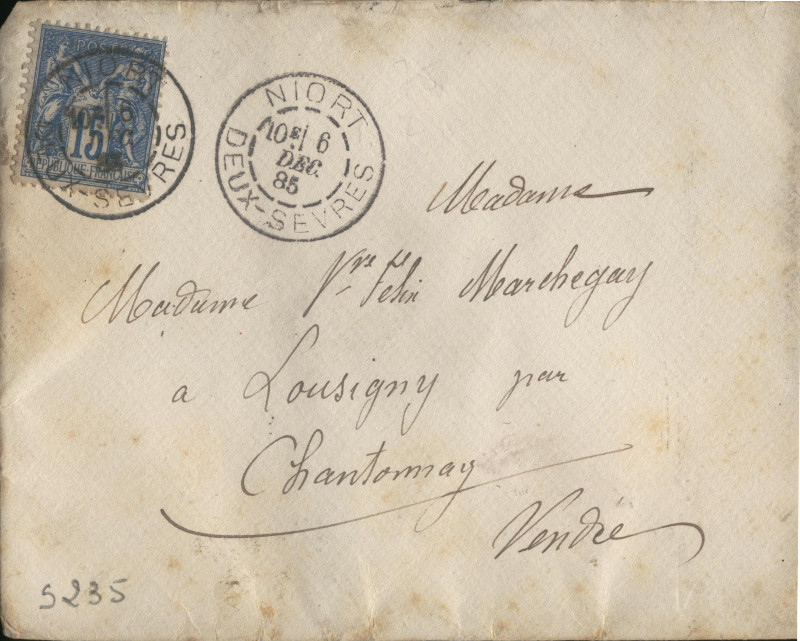 POSTES
15
REPUBLIQUE FRANÇAISE
NIORT
6
X-SEVRES
NIORT
10E 6
DEC.
85
DEUX-SEVRES
Madame
Madame Vve Felix Marchegay
a Lousigny par
Chantonnay
Vendée
S235